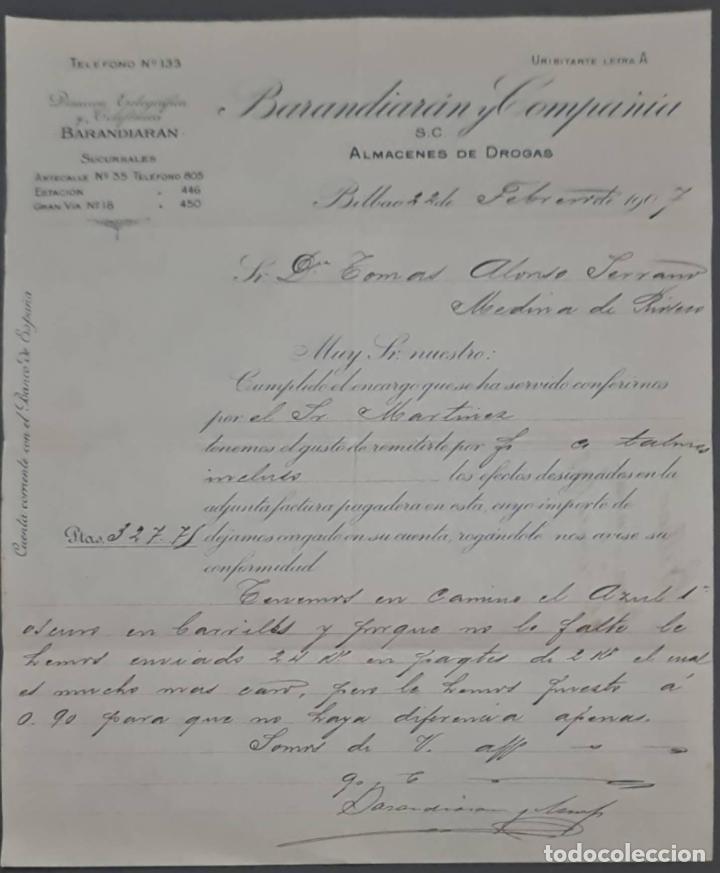 TELEFONO Nº 133
URIBITARTE LETRA A
Direccion Telegráfica
y Telefónica
BARANDIARAN
SUCURSALES
ARTECALLE Nº 35 TELÉFONO 805
ESTACIÓN " 446
GRAN VIA Nº 18 " 450
Barandiarán y Compañia
S.C.
ALMACENES DE DROGAS
Bilbao 22 de Febrero de 1907
Sr. Dn Tomas Alonso Serrano
Medina de Rioseco
Muy Sr. nuestro:
Cumplido el encargo que se ha servido conferirnos
por el Sr. Martinez
tenemos el gusto de remitirle por talones
incluso los efectos designados en la
adjunta factura pagadera en esta, cuyo importe de
Ptas. 327.75 dejamos cargado en su cuenta, rogándole nos avise su
conformidad
Tenemos en camino el Azul 1º
oscuro en barriles y porque no le falte le
hemos enviado 24 Ks. en paqtes de 2 Ks el cual
es mucho mas caro, pero le hemos puesto á
0.90 para que no haya diferencia apenas.
Somos de V. aff
q. b.
Barandiaran y Comp
Cuenta corriente con el Banco de España
todocoleccion.net